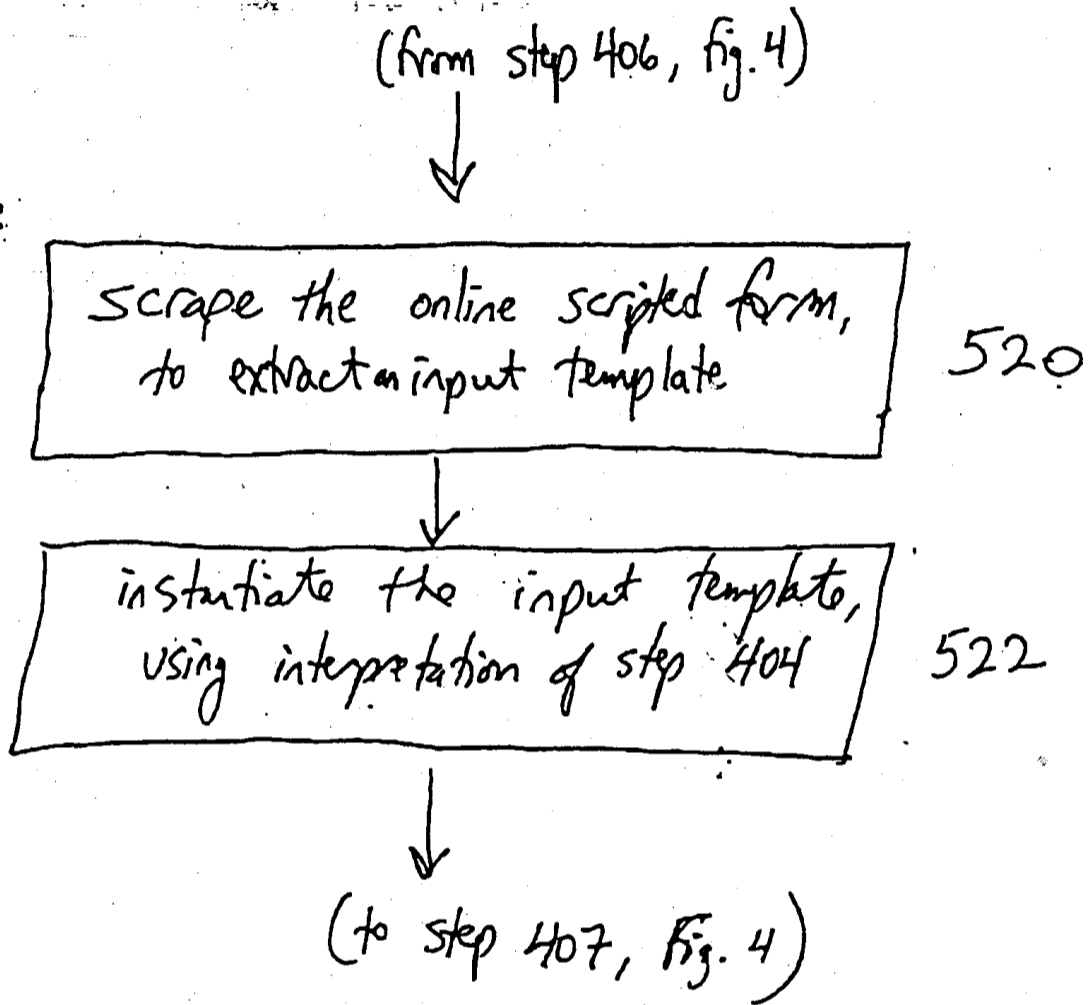 (from step 406, fig. 4)
scrape the online scripted form,
to extract an input template
520
instantiate the input template,
using interpretation of step 404
522
(to step 407, Fig. 4)